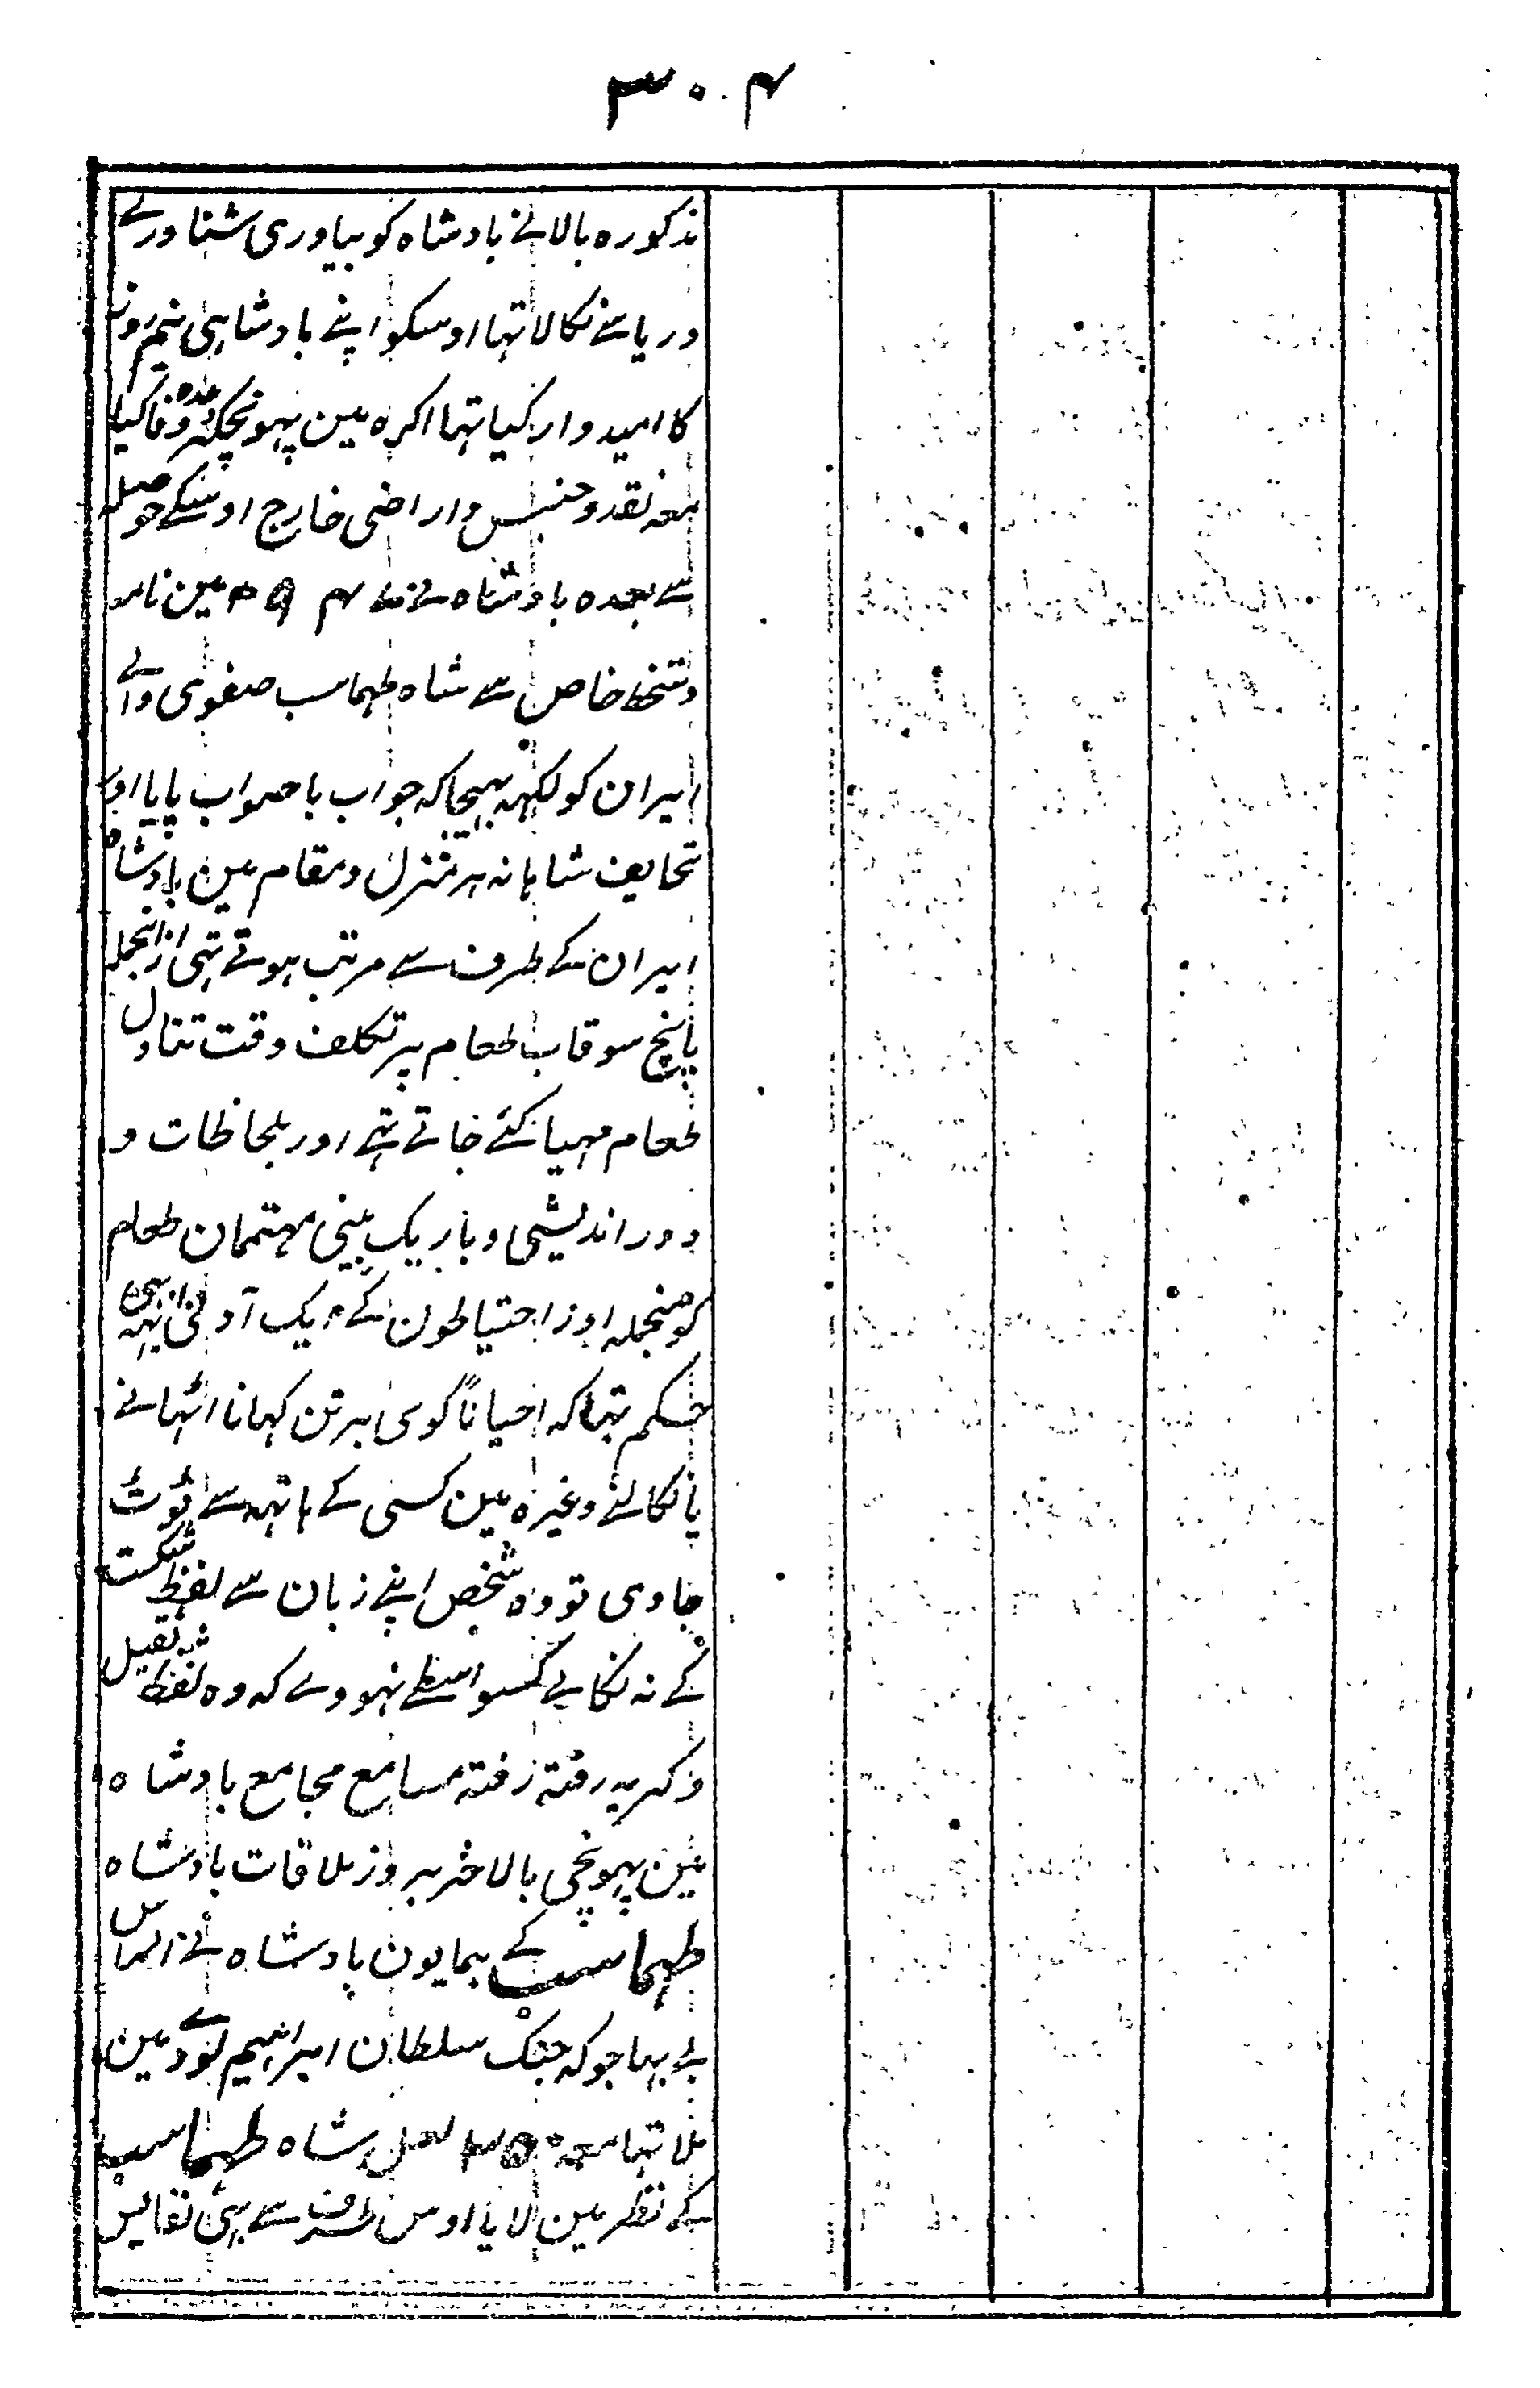 ۳۰۴
مذکوره بالانے بادشاه کو بیاوری شناوری
دریاسے نکالا تہا اوسکو اپنے بادشاہی نیم روز
کا امیدوار کیا تہا اکره مین پہونچکر وعده وفا کیا
معہ نقد و جنس و اراضی خارج اوسکے حوصلہ
سے بعده بادشاه نے مین نامہ
دستخط خاص سے شاه طہماسب صفوی والے
ایران کو لکہہ بہیجا کہ جواب با صواب پایا اور
تحایف شاہانہ ہر منزل و مقام مین بادشاه
ایران کے طرف سے مرتب ہوتے تہی ازانجملہ
پانچ سو قاب طعام پر تکلف وقت تناول
طعام مہیا کئے جاتے تہے اور بلحاظات و
دور اندیشی و باریک بینی مہتممان طعام
کو منجملہ اور احتیاطون کے ایک ادنی یہہ بہی
حکم تہا کہ احیاناً کوی برتن کہانا اٹہانے
یا نکالنے وغیره مین کسی کے ہاتہہ سے ٹوٹ
جاوی تو وه شخص اپنے زبان سے لفظ شکست
کے نہ نکالے کسواسطے نہووے کہ وه لفظ ثقیل
ذکریہ رفتہ رفتہ مسامع مجامع بادشاه
مین پہونچی بالاخر بروز ملاقات بادشاه
طہماسب کے ہمایون پادشاه نے الماس
بے بہا جو کہ جنگ سلطان ابراہیم لودے مین
ملا تہا معہ ۲۵۰ لعل شاه طہماسب
کے نظر مین لایا اوس طرف سے بہی نفایس